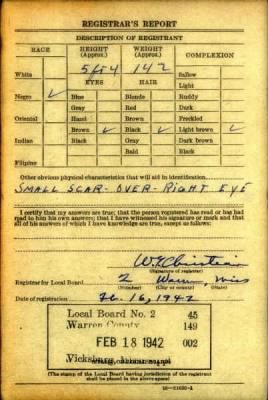 REGISTRAR'S REPORT
DESCRIPTION OF REGISTRANT
RACE HEIGHT (Approx.) WEIGHT (Approx.) COMPLEXION
White 5 ft 4 142 Sallow
EYES HAIR Light
Negro ✓ Blue Blonde Ruddy
Gray Red Dark
Oriental Hazel Brown Freckled
Brown ✓ Black ✓ Light brown ✓
Indian Black Gray Dark brown
Bald Black
Filipino
Other obvious physical characteristics that will aid in identification
SMALL SCAR - OVER - RIGHT EYE
I certify that my answers are true; that the person registered has read or has had
read to him his own answers; that I have witnessed his signature or mark and that
all of his answers of which I have knowledge are true, except as follows:
(Signature of registrar)
Registrar for Local Board 2 Warren, Miss
(Number) (City or county) (State)
Date of registration Feb. 16, 1942
Local Board No. 2 45
Warren County 149
FEB 18 1942 002
Vicksburg, Mississippi
(The stamp of the Local Board having jurisdiction of the registrant
shall be placed in the above space)